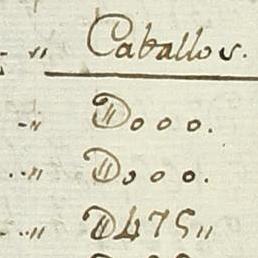 " Caballos.
-" D000.
.." D000.
..." D475"